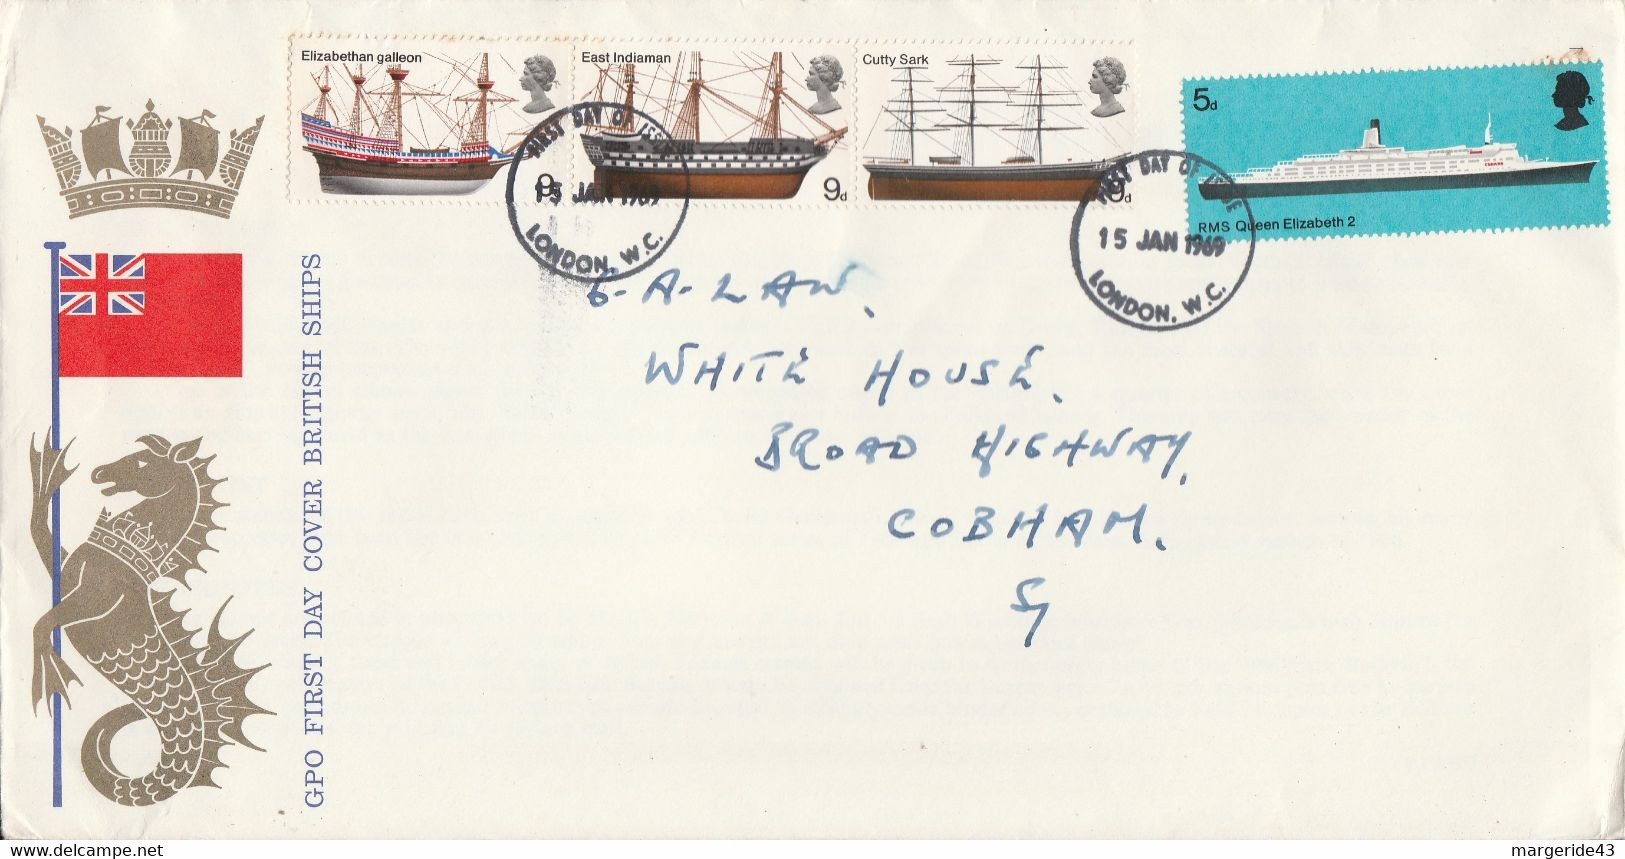 Elizabethan galleon
East Indiaman
Cutty Sark
9d
9d
9d
5d
RMS Queen Elizabeth 2
FIRST DAY OF ISSUE
15 JAN 1969
LONDON, W.C.
FIRST DAY OF ISSUE
15 JAN 1969
LONDON, W.C.
GPO FIRST DAY COVER BRITISH SHIPS
G-A-LAW,
WHITE HOUSE,
BROAD HIGHWAY,
COBHAM,
SY
Delcampe.net
margeride43